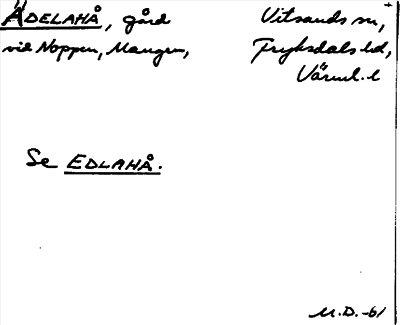 ÄDELAHÅ, gård Vitsands sn,
vid Noppen, Mangen, Fryksdals hd,
Värml. l
Se EDLAHÅ.
M.D. -61